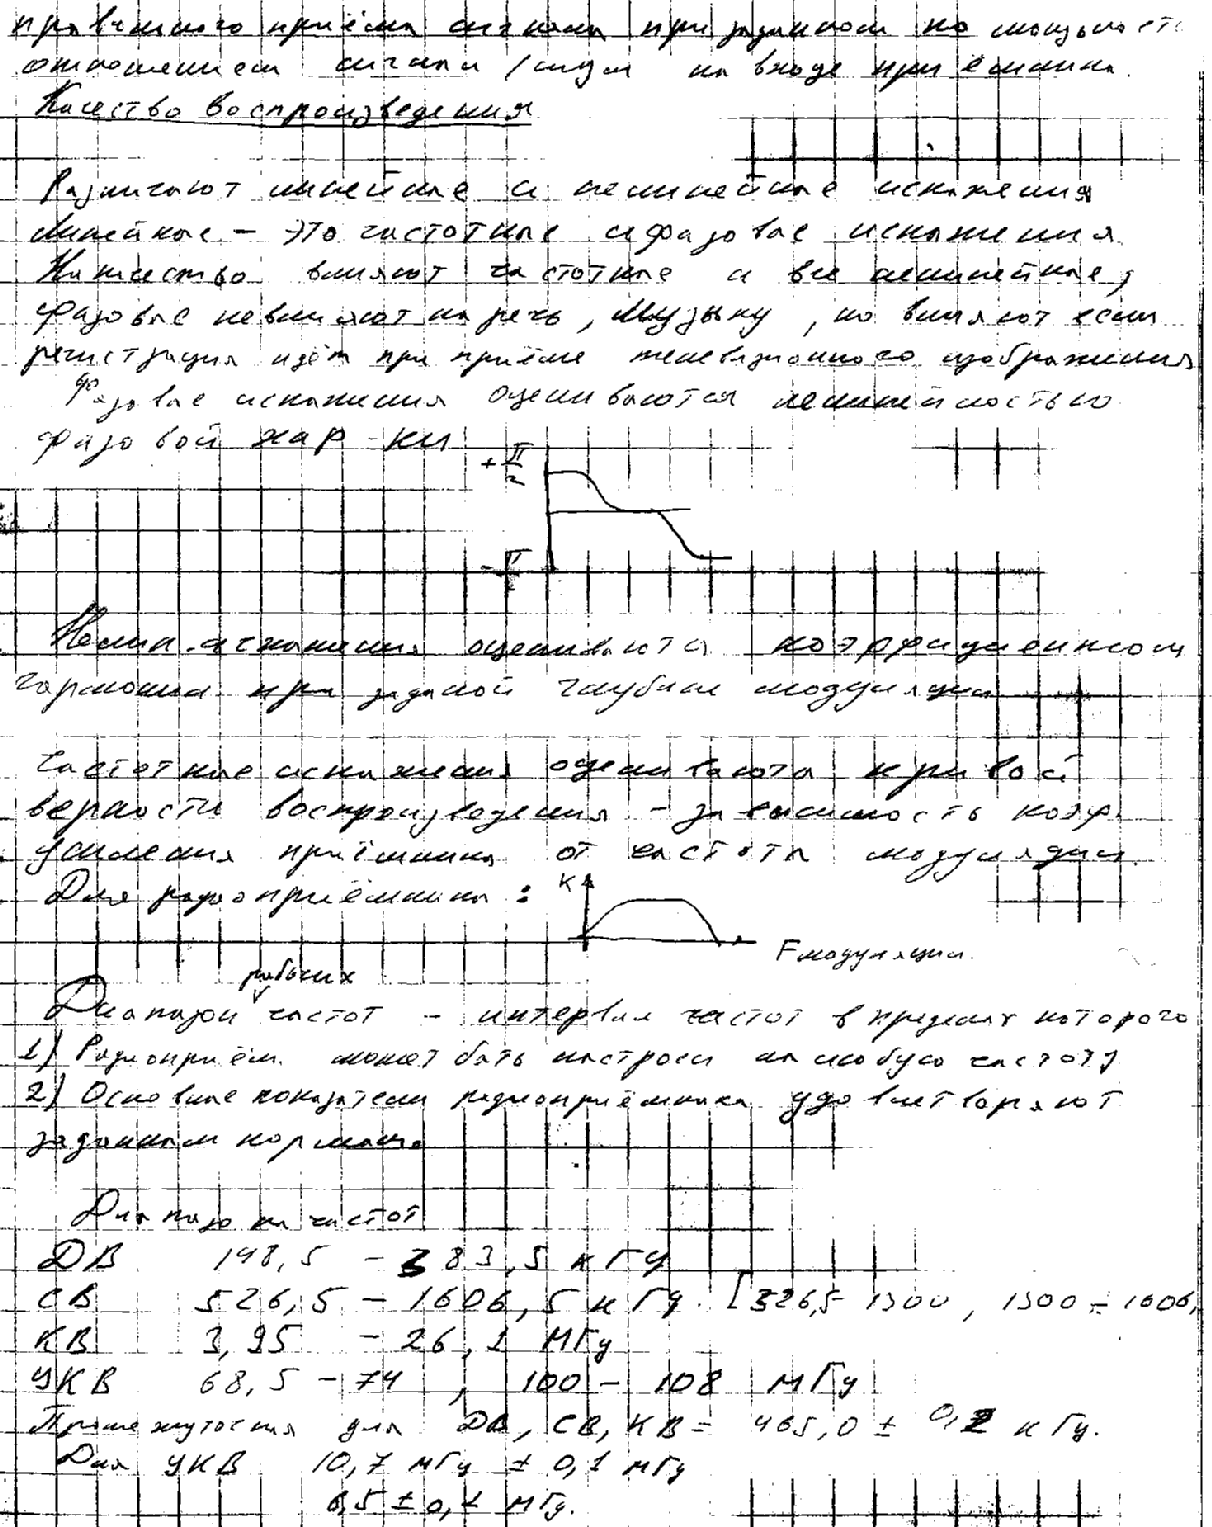 правильного приёма сигнала при заданном по мощности
отношением сигнал / шум на входе приёмника.
Качество воспроизведения
Различают линейные и нелинейные искажения
Линейные - это частотные и фазовые искажения.
На качество влияют частотные и все нелинейные,
фазовые не влияют на речь, музыку, но влияют если
регистрация идёт при приёме телевизионного изображения
Фазовые искажения оцениваются нелинейностью
фазовой хар-ки
+ П/2
- П/2
Нелин. искажения оцениваются коэффициентом
гармоник при заданой глубине модуляции
Частотные искажения оцениваются кривой
верности воспроизведения - зависимость коэф.
усиления приёмника от частоты модуляции.
Для радиоприёмника :
K
F модуляции.
рабочих
Диапазон частот - интервал частот в пределах которого
1) Радиоприём. может быть настроен на любую частоту
2) Основные показатели радиоприёмника удовлетворяют
заданным нормам.
Диапазон частот
ДВ 148,5 - 283,5 кГц
СВ 526,5 - 1606,5 кГц. [526,5 - 1300, 1300 ÷ 1606,
КВ 3,95 - 26,1 МГц
УКВ 68,5 - 74 , 100 - 108 МГц
Промежуточная для ДВ, СВ, КВ = 465,0 ± 0,2 кГц.
Для УКВ 10,7 мГц ± 0,1 мГц
6,5 ± 0,1 мГц.